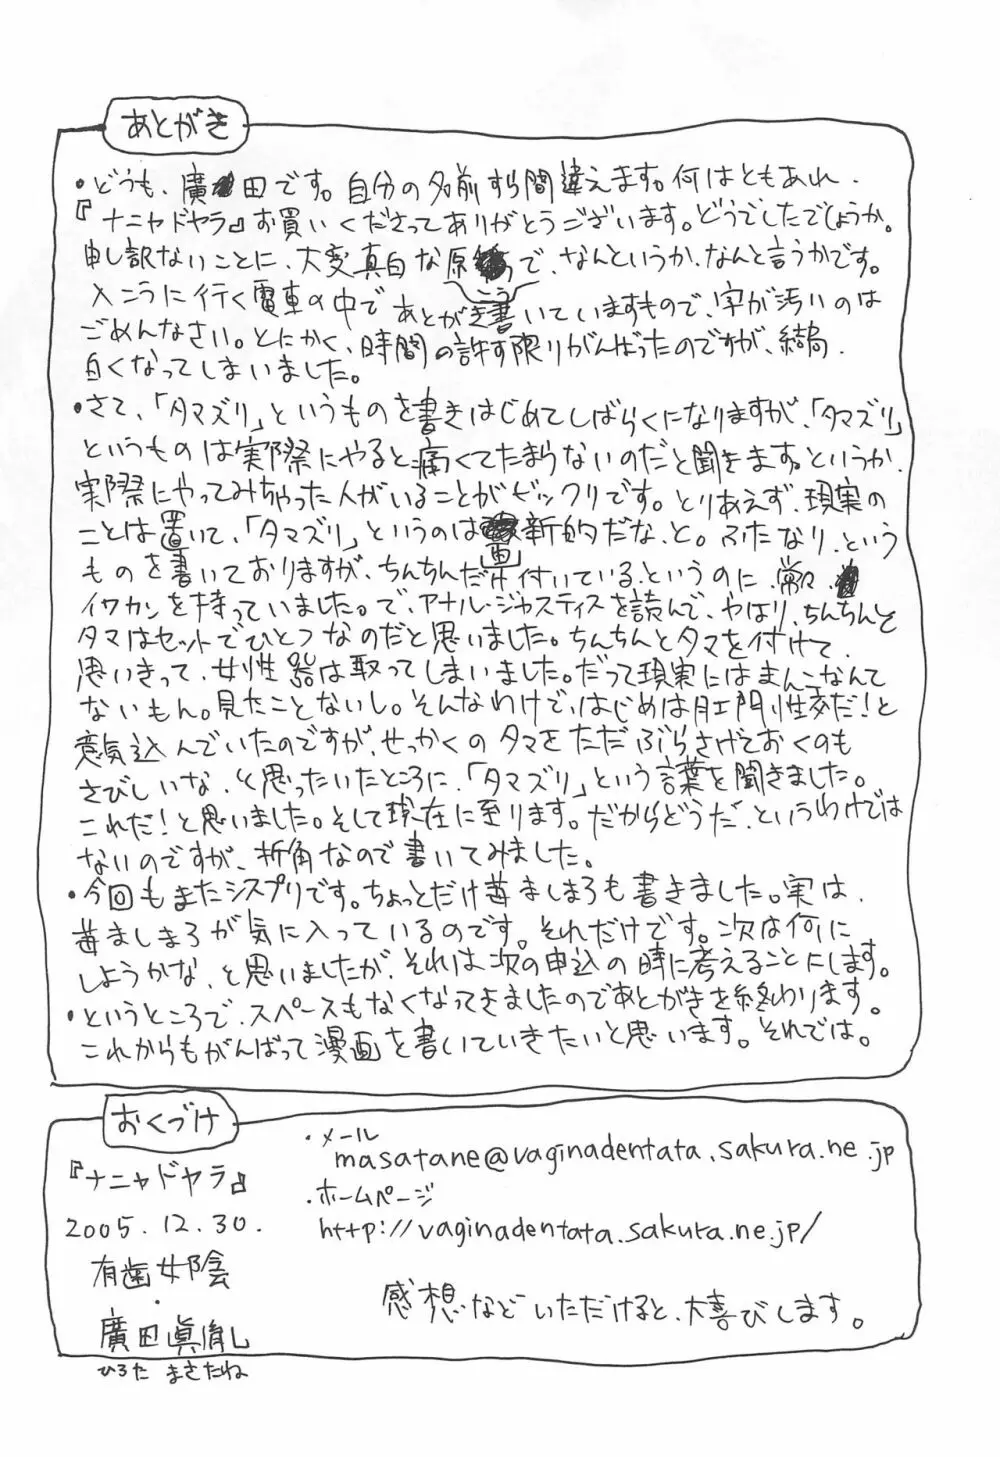 あとがき
・どうも、廣田です。自分の名前すら間違えます。何はともあれ、
『ナニャドヤラ』お買いくださってありがとうございます。どうでしたでしょうか。
申し訳ないことに、大変真白な原こうで、なんというか、なんと言うかです。
入こうに行く電車の中であとがき書いていますもので、字が汚いのは
ごめんなさい。とにかく、時間の許す限りがんばったのですが、結局、
白くなってしまいました。
・さて、「タマズリ」というものを書きはじめてしばらくになりますが、「タマズリ」
というものは実際にやると痛くてたまらないのだと聞きます。というか、
実際にやってみちゃった人がいることがビックリです。とりあえず、現実の
ことは置いて、「タマズリ」というのは画新的だな、と。ふたなり、という
ものを書いておりますが、ちんちんだけ付いている、というのに、常々
イワカンを持っていました。で、アナル・ジャスティスを読んで、やはり、ちんちんと
タマはセットでひとつなのだと思いました。ちんちんとタマを付けて、
思いきって、女性器は取ってしまいました。だって現実にはまんこなんて
ないもん。見たことないし。そんなわけで、はじめは肛門性交だ!と
意気込んでいたのですが、せっかくのタマをただぶらさげておくのも
さびしいな、と思ったいたところに、「タマズリ」という言葉を聞きました。
これだ!と思いました。そして現在に至ります。だからどうだ、というわけでは
ないのですが、折角なので書いてみました。
・今回もまたシスプリです。ちょっとだけ苺ましまろも書きました。実は、
苺ましまろが気に入っているのです。それだけです。次は何に
しようかな、と思いましたが、それは次の申込の時に考えることにします。
・というところで、スペースもなくなってきましたのであとがきを終わります。
これからもがんばって漫画を書いていきたいと思います。それでは。
おくづけ
『ナニャドヤラ』
2005.12.30.
有歯女陰
・
廣田眞胤
ひろた まさたね
・メール
masatane@vaginadentata.sakura.ne.jp
・ホームページ
http://vaginadentata.sakura.ne.jp/
感想などいただけると、大喜びします。